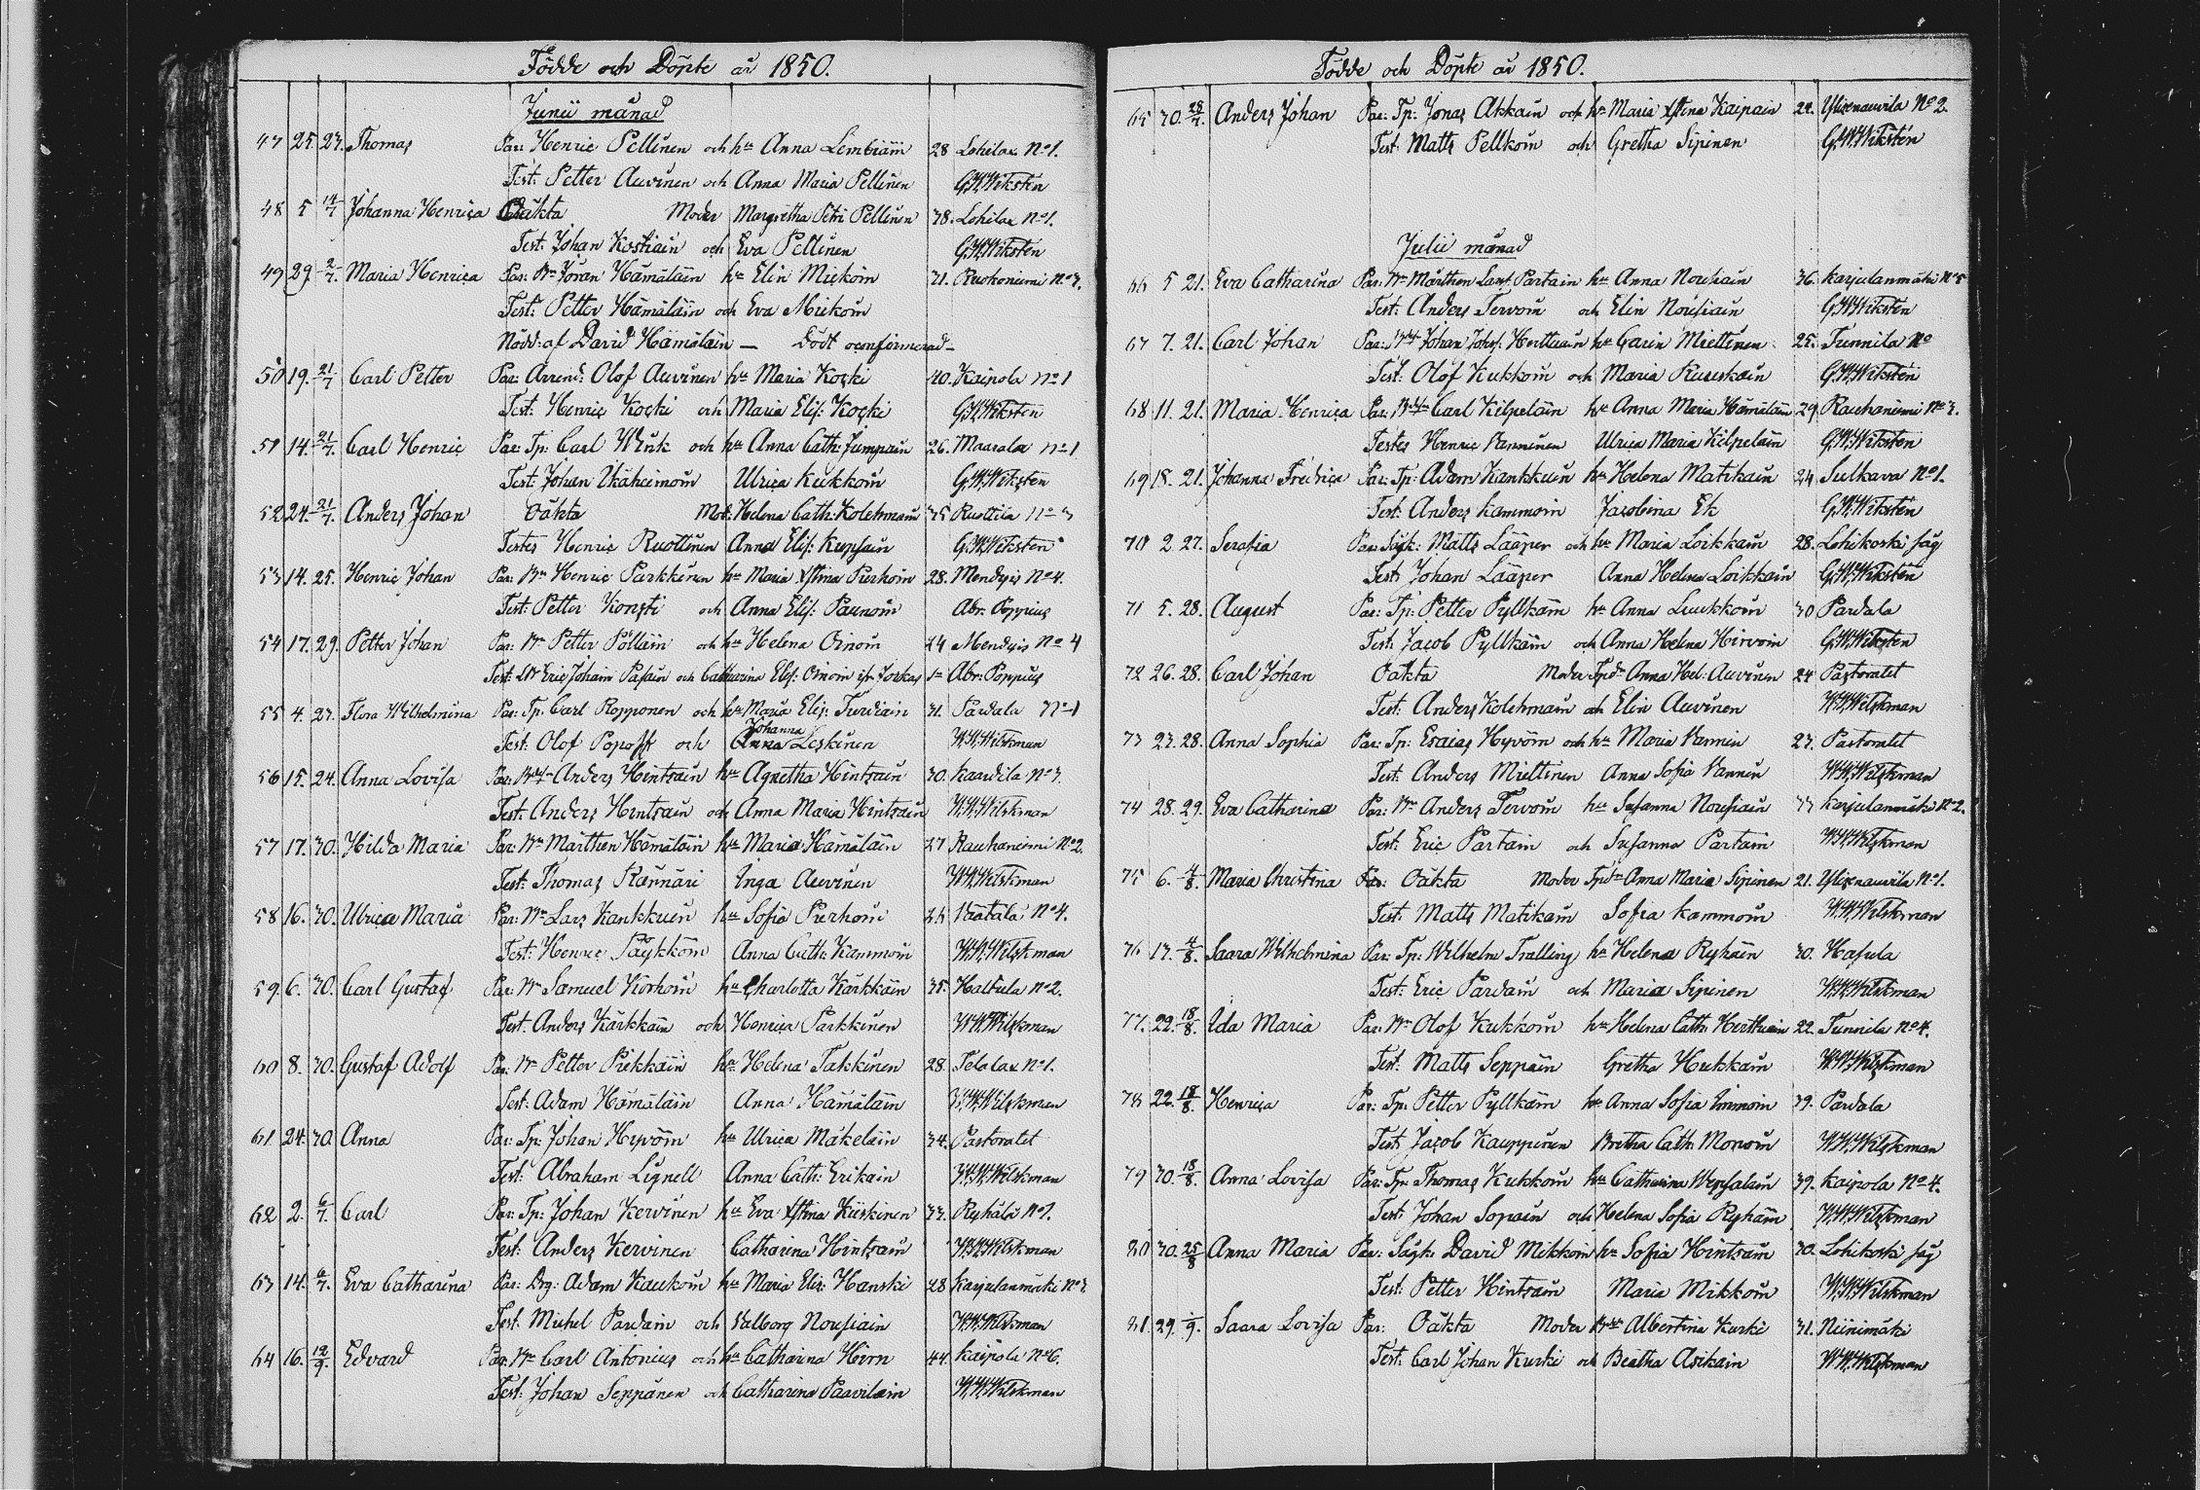 Födde och Döpte år 1850.
Junii månad
47 25. 27. Thomas Par: Henric Pellinen och hu Anna Lembiäin 28 Lohilax No 1.
Test: Petter Auvinen och Anna Maria Pellinen G.W. Wiksten
48 5 14/7 Johanna Henrica Oäkta Moder Margretha Petri Pellinen 38. Lohilax No 1.
Test: Johan Kostiain och Eva Pellinen G.W. Wiksten
49 29 2/7. Maria Henrica Par: Bn Jöran Hämäläin hu Elin Mickoin 31. Ruokoniemi No 3.
Test: Petter Hämäläin och Eva Mickoin
Nödd: af David Hämäläin — Dödt oconfirmerad —
50 19. 21/7 Carl Petter Par: Arrend: Olof Auvinen hu Maria Koski 40. Kaipola No 1
Test: Henric Koski och Maria Elis: Koski G.W. Wiksten
51 14. 21/7. Carl Henric Par: Tp: Carl Wink och hu Anna Cath: Jumpain 26. Maarala No 1
Test: Johan Ikäheimoin Ulrica Kukkoin G.W. Wiksten
52 24. 21/7. Anders Johan Oäkta Mod: Helena Cath: Kolehmain 35 Ruottila No 3
Testes Henric Ruottinen Anna Elis: Kupsain G.W. Wiksten
53 14. 25. Henric Johan Par: Bn Henric Parkkinen hu Maria Xstina Pierhoin 28. Mendyis No 4.
Test: Petter Konsti och Anna Elis: Paunoin Abr: Poppius
54 17. 29. Petter Johan Par: Bn Petter Pölläin och hu Helena Oinoin 24 Mendyis No 4
Test: Eric Johan Pasain och Catharina Elis: Oinoin Abr: Poppius
55 4. 23. Flora Wilhelmina Par: Tp. Carl Ropponen och hu Maria Elis: Turtiain 31. Pardala No 1
Test: Olof Popoff och Johanna Leskinen W.W. Wilskman
56 15. 24. Anna Lovisa Par: Anders Hintsain hu Agnetha Hintsain 30. Kaartila No 3.
Test: Anders Hintsain och Anna Maria Hintsain W.W. Wilskman
57 17. 30. Hilda Maria Par: Bn Mårthen Hämäläin hu Maria Hämäläin 27 Rauhaniemi No 2
Test: Thomas Kannari Inga Auvinen W.W. Wilskman
58 16. 30. Ulrica Maria Par: Bn Lars Kankkuin hu Sofia Pierhoin 26 Väätälä No 4.
Test: Henric Päykköin Anna Cath: Kammoin W.W. Wilskman
59 6. 30. Carl Gustaf Par: Bn Samuel Korhoin hu Charlotta Karkkain 35. Haltula No 2.
Test: Anders Karkkain och Henrica Parkkinen W.W. Wilskman
60 8. 30. Gustaf Adolf Par: Bn Petter Pirkkain hu Helena Takkinen 28. Telalax No 1.
Test: Adam Hämäläin Anna Hämäläin W.W. Wilskman
61 24. 30. Anna Par: Tp: Johan Hyvöin hu Ulrica Mäkeläin 34. Pastoratet
Test: Abraham Lignell Anna Cath: Erikain W.W. Wilskman
62 2. 6/7. Carl Par: Tp: Johan Kervinen hu Eva Xstina Kiiskinen 33. Ryhälä No 1.
Test: Anders Kervinen Catharina Hintsain W.W. Wilskman
63 14. 6/7. Eva Catharina Par: Drg: Adam Kaukoin hu Maria Elis: Hanski 28 Karjulanmäki No 3.
Test. Michel Pardain och Valborg Nousiain W.W. Wilskman
64 16. 12/9 Edvard Par: Bn Carl Antonius och hu Catharina Hirn 44. Kaipola No 6.
Test: Johan Seppänen och Catharina Paavilain W.W. Wilskman
Födde och Döpte år 1850.
65 30. 28/7. Anders Johan Par: Tp: Jonas Akkain och hu Maria Xstina Kaipain 22. Ylisenauvila No 2.
Test: Matts Pellkoin och Gretha Sipinen G.W. Wiksten
Julii månad
66 5 21. Eva Catharina Par: Bn Mårthen Lars: Partain hu Anna Nousiain 36. Karjulanmäki No 5
Test: Anders Tervoin och Elin Nousiain G.W. Wiksten
67 7. 21. Carl Johan Par: Johan Johs: Herttuain hu Carin Miettinen 25. Tunnila No
Test: Olof Kukkoin och Maria Ruuskain G.W. Wiksten
68 11. 21. Maria Henrica Par: Carl Kilpeläin hu Anna Maria Hämäläin 29. Rauhaniemi No 3.
Testes Henric Vanninen Ulrica Maria Kilpeläin G.W. Wiksten
69 18. 21. Johanna Fredrica Par: Tp: Adam Kankkuin hu Helena Matikain 24 Sulkava No 1.
Test: Anders Kammoin Jacobina Ek G.W. Wiksten
70 2 27. Serafia Par: Sågk: Matts Lääper och hu Maria Loikkain 28. Lohikoski såg
Test: Johan Lääper Anna Helena Loikkain G.W. Wiksten
71 5. 28. August Par: Tp: Petter Pyllkäin hu Anna Luukkoin 30 Pardala
Test: Jacob Pyllkäin och Anna Helena Hirvoin G.W. Wiksten
72 26. 28. Carl Johan Oäkta Moder Anna Hel: Auvinen 24 Pastoratet
Test: Anders Kolehmain och Elin Auvinen W.W. Wilskman
73 23. 28. Anna Sophia Par: Tp: Esaias Hyvöin och hu Maria Vannin 23. Pastoratet
Test: Anders Miettinen Anna Sofia Vannin W.W. Wilskman
74 28. 29. Eva Catharina Par: Bn Anders Tervoin hu Susanna Nousiain 33 Karjulanmäki No 2.
Test: Eric Partain och Susanna Partain W.W. Wilskman
75 6. 4/8. Maria Christina Par: Oäkta Moder Anna Maria Sipinen 21. Ylisenauvila No 1.
Test: Matts Matikain Sofia Kammoin W.W. Wilskman
76 13. 4/8. Saara Wilhelmina Par: Tp: Wilhelm Tralling hu Helena Ryhäin 30. Hasula
Test: Eric Pardain och Maria Sipinen W.W. Wilskman
77. 22. 18/8. Ida Maria Par: Bn Olof Kukkoin hu Helena Cath: Herttuain 22. Tunnila No 4.
Test: Matts Seppäin Gretha Hukkain W.W. Wilskman
78 22. 18/8. Henrica Par: Tp: Petter Pyllkäin hu Anna Sofia Immoin 39. Pardala
Test: Jacob Kauppinen Bretha Cath: Monoin W.W. Wilskman
79 30. 18/8. Anna Lovisa Par: Tp: Thomas Kukkoin hu Catharina Wepsäläin 39. Kaipola No 4.
Test: Johan Sopain och Helena Sofia Ryhäin W.W. Wilskman
80 30. 25/8 Anna Maria Par: Sågk: David Mikkoin hu Sofia Hintsain 30. Lohikoski såg
Test: Petter Hintsain Maria Mikkoin W.W. Wilskman
81. 29. 1/9. Saara Lovisa Par: Oäkta Moder Albertina Kurki 31. Niinimäki
Test: Carl Johan Kurki och Beatha Asikain W.W. Wilskman